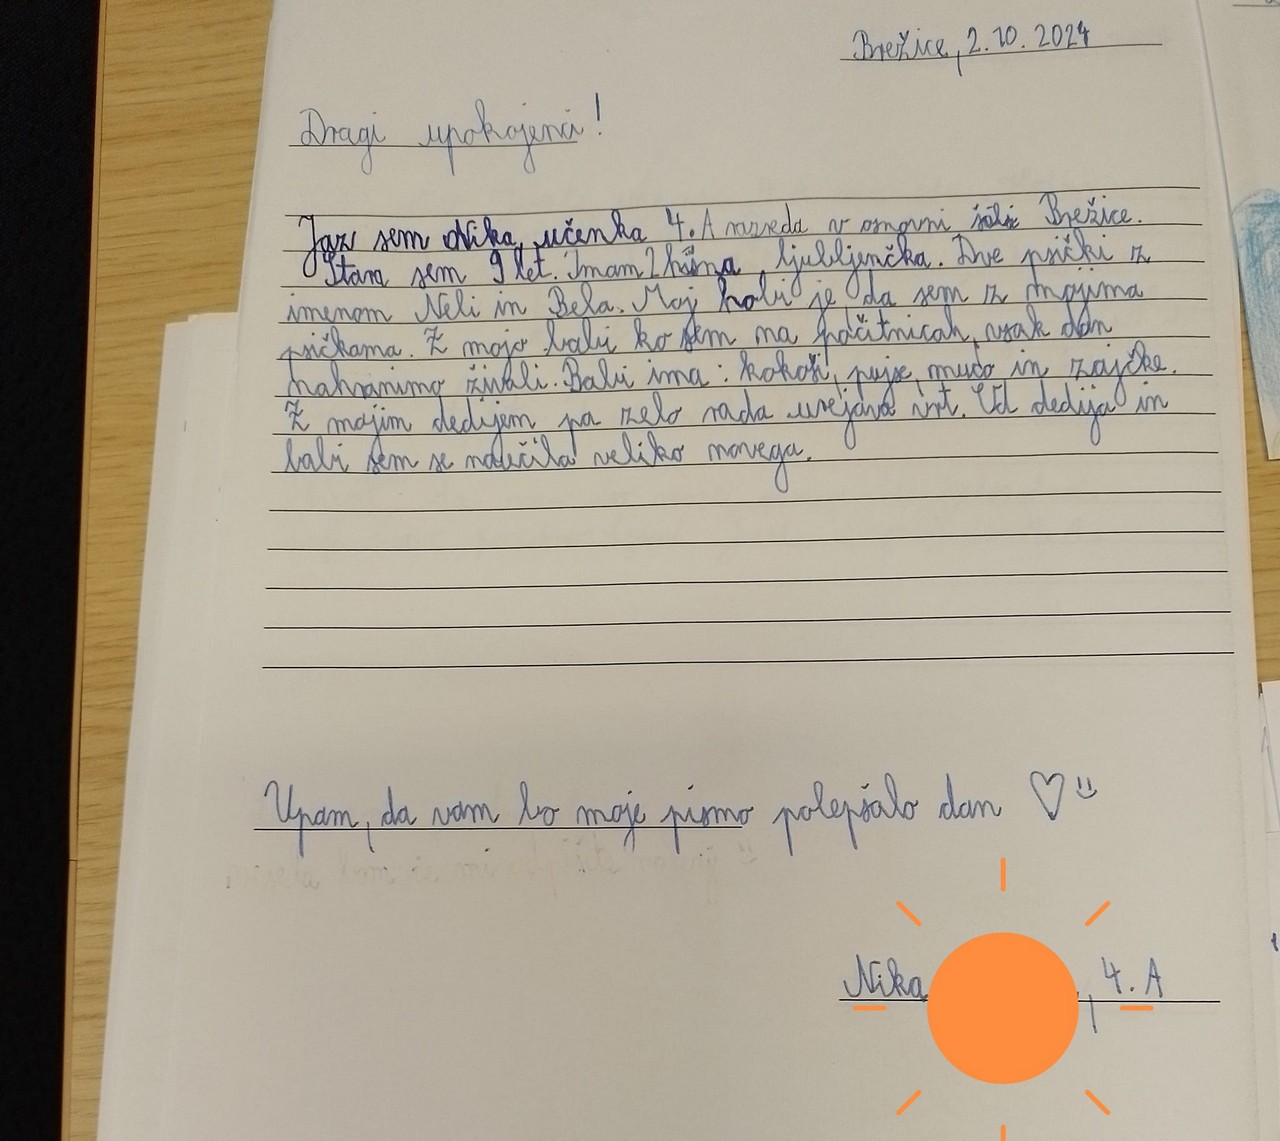 Brežice, 2.10.2024
Dragi upokojenci!
Jaz sem Nika, učenka 4. A razreda v osnovni šoli Brežice.
Stara sem 9 let. Imam 2 hišna ljubljenčka. Dve psički z
imenom Neli in Bela. Moj hobi je da sem z mojima
psičkama. Z mojo babi ko sem na počitnicah, vsak dan
nahranimo živali. Babi ima: kokoši, pujse, muco in zajčke.
Z mojim dedijem pa zelo rada urejava vrt. Od dedija in
babi sem se naučila veliko novega.
Upam, da vam bo moje pismo polepšalo dan ♡
Nika , 4. A